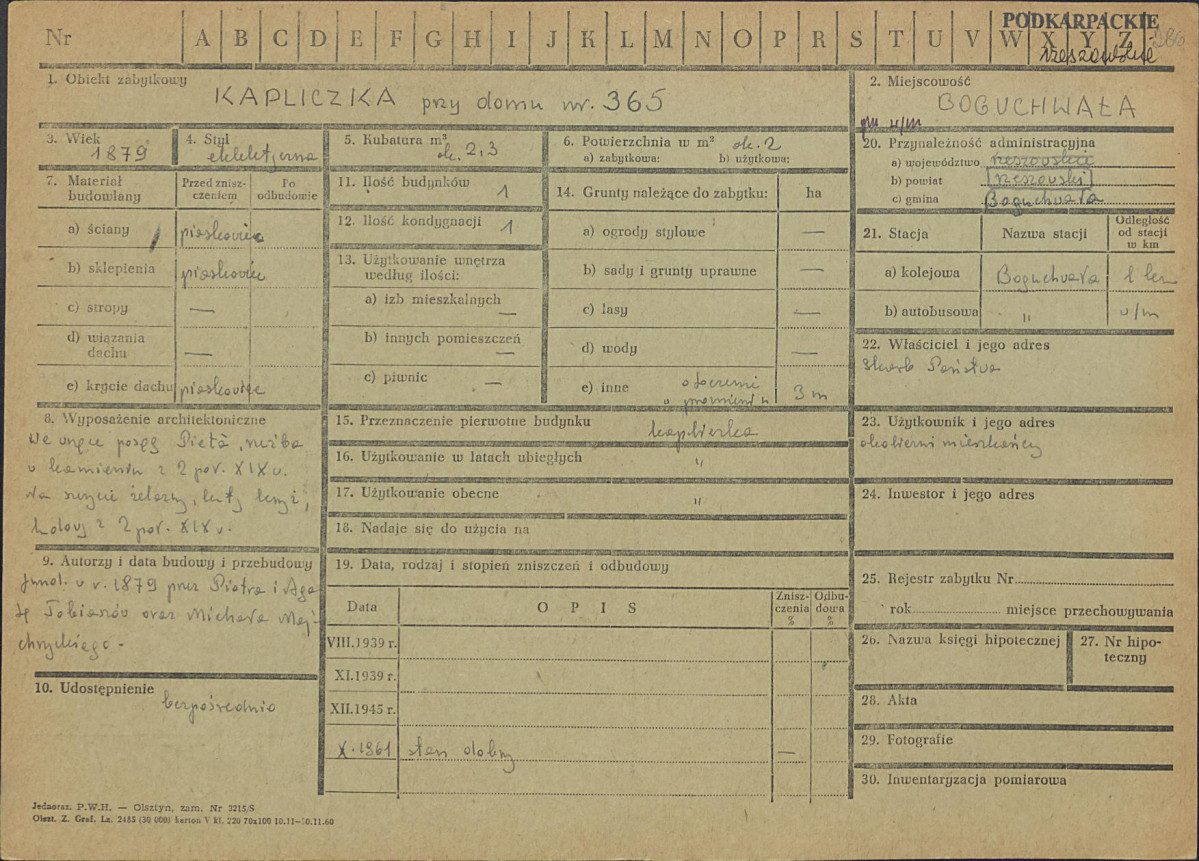 Nr A B C D E F G H I J K L M N O P R S T U V W X Y Z
PODKARPACKIE
rzeszowskie
1. Obiekt zabytkowy
KAPLICZKA przy domu nr. 365
2. Miejscowość
BOGUCHWAŁA
3. Wiek
1879
4. Styl
eklektyczna
5. Kubatura m³
ok. 2,3
6. Powierzchnia w m² ok. 2
a) zabytkowa: b) użytkowa:
gm w/m
20. Przynależność administracyjna
a) województwo rzeszowskie
b) powiat rzeszowski
c) gmina Boguchwała
7. Materiał budowlany
Przed zniszczeniem
Po odbudowie
a) ściany piaskowiec
b) sklepienia piaskowiec
c) stropy —
d) wiązania dachu —
e) krycie dachu piaskowiec
11. Ilość budynków 1
12. Ilość kondygnacji 1
13. Użytkowanie wnętrza
według ilości:
a) izb mieszkalnych —
b) innych pomieszczeń —
c) piwnic —
14. Grunty należące do zabytku: ha
a) ogrody stylowe —
b) sady i grunty uprawne —
c) lasy —
d) wody —
e) inne otoczenie
w promieniu 3 m
21. Stacja
Nazwa stacji
Odległość
od stacji
w km
a) kolejowa Boguchwała 1 km
b) autobusowa " w/m
22. Właściciel i jego adres
Skarb Państwa
8. Wyposażenie architektoniczne
We wnęce posąg Pietà, rzeźba
w kamieniu z 2 poł. XIX w.
Na szczycie żelazny, kuty krzyż,
z 2 poł. XIX w.
15. Przeznaczenie pierwotne budynku kapliczka
16. Użytkowanie w latach ubiegłych "
17. Użytkowanie obecne "
18. Nadaje się do użycia na
23. Użytkownik i jego adres
okoliczni mieszkańcy
24. Inwestor i jego adres
9. Autorzy i data budowy i przebudowy
fund. w r. 1879 przez Piotra i Aga-
tę Tobiaszów oraz Michała Maj-
chrzyckiego.
19. Data, rodzaj i stopień zniszczeń i odbudowy
Data
OPIS
Zniszczenia %
Odbudowa %
VIII.1939 r.
XI.1939 r.
XII.1945 r.
X.1961 stan dobry —
25. Rejestr zabytku Nr
rok miejsce przechowywania
26. Nazwa księgi hipotecznej
27. Nr hipo-
teczny
10. Udostępnienie
bezpośrednio
28. Akta
29. Fotografie
30. Inwentaryzacja pomiarowa
Jednoraz. P.W.H. — Olsztyn, zam. Nr 3215/S
Olszt. Z. Graf. Lz. 2485 (30 000) karton V kl. 220 70x100 10.11—30.11.60